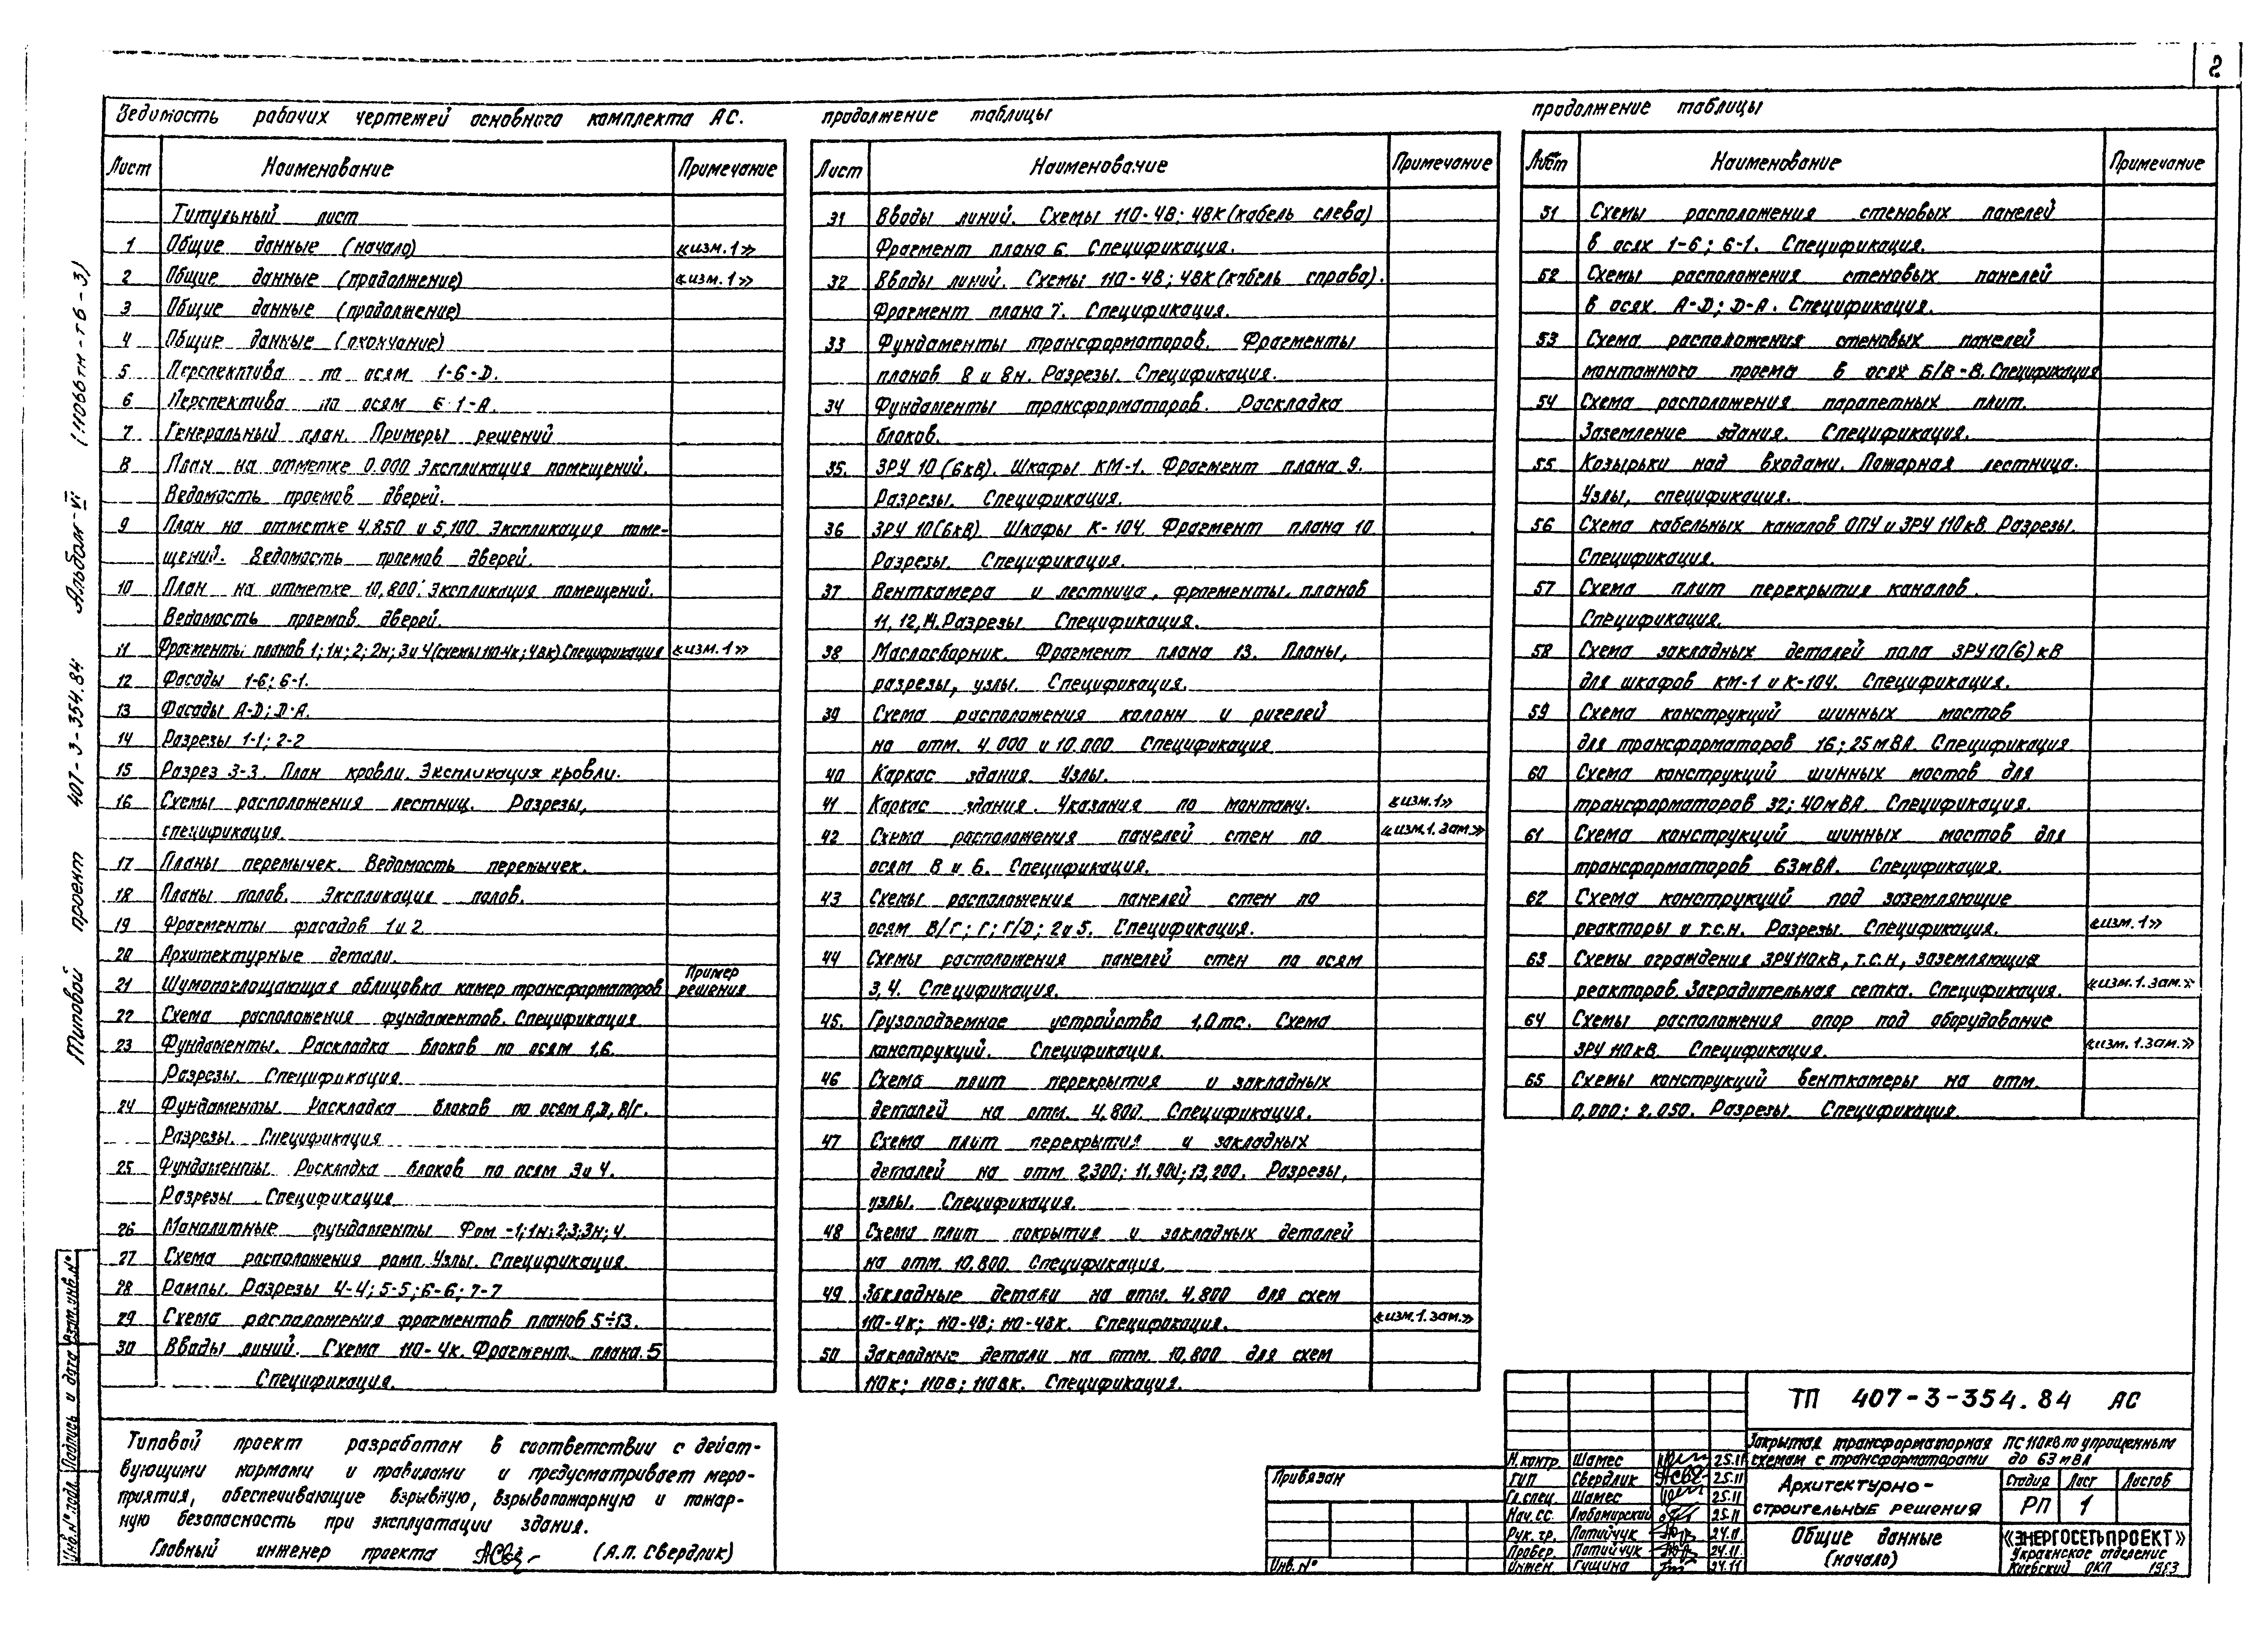 2
Ведомость рабочих чертежей основного комплекта АС.
Лист Наименование Примечание
Титульный лист
1 Общие данные (начало) «изм.1»
2 Общие данные (продолжение) «изм.1»
3 Общие данные (продолжение)
4 Общие данные (окончание)
5 Перспектива по осям 1-6-Д.
6 Перспектива по осям 6-1-А.
7 Генеральный план. Примеры решений
8 План на отметке 0.000 Экспликация помещений.
Ведомость проемов дверей.
9 План на отметке 4.850 и 5,100 Экспликация поме-
щений. Ведомость проемов дверей.
10 План на отметке 10,800. Экспликация помещений.
Ведомость проемов дверей.
11 Фрагменты планов 1; 1н; 2; 2н; 3 и 4 (схемы 110-4к; 4вк) Спецификация «изм.1»
12 Фасады 1-6; 6-1.
13 Фасады А-Д; Д-А.
14 Разрезы 1-1; 2-2
15 Разрез 3-3. План кровли. Экспликация кровли.
16 Схемы расположения лестниц. Разрезы,
спецификация.
17 Планы перемычек. Ведомость перемычек.
18 Планы полов. Экспликация полов.
19 Фрагменты фасадов 1 и 2
20 Архитектурные детали.
21 Шумопоглощающая облицовка камер трансформаторов Пример решения
22 Схема расположения фундаментов. Спецификация
23 Фундаменты. Раскладка блоков по осям 1,6.
Разрезы. Спецификация.
24 Фундаменты. Раскладка блоков по осям А,Д, В/Г.
Разрезы. Спецификация
25 Фундаменты. Раскладка блоков по осям 3 и 4.
Разрезы. Спецификация
26 Монолитные фундаменты Фом -1; 1н; 2; 3; 3н; 4.
27 Схема расположения рамп. Узлы. Спецификация
28 Рампы. Разрезы 4-4; 5-5; 6-6; 7-7
29 Схема расположения фрагментов планов 5÷13.
30 Вводы линий. Схема 110-4к. Фрагмент плана 5
Спецификация.
продолжение таблицы
Лист Наименование Примечание
31 Вводы линий. Схемы 110-4В; 4ВК (кабель слева)
Фрагмент плана 6. Спецификация.
32 Вводы линий. Схемы 110-4В; 4ВК (кабель справа).
Фрагмент плана 7. Спецификация.
33 Фундаменты трансформаторов. Фрагменты
планов 8 и 8н. Разрезы. Спецификация.
34 Фундаменты трансформаторов. Раскладка
блоков.
35. ЗРУ 10 (6кВ). Шкафы КМ-1. Фрагмент плана 9.
Разрезы. Спецификация.
36 ЗРУ 10(6кВ) Шкафы К-104. Фрагмент плана 10.
Разрезы. Спецификация.
37 Венткамера и лестница, фрагменты планов
11, 12, 14. Разрезы Спецификация.
38 Маслосборник. Фрагмент плана 13. Планы,
разрезы, узлы. Спецификация.
39 Схема расположения колонн и ригелей
на отм. 4.000 и 10.000 Спецификация
40 Каркас здания. Узлы.
41 Каркас здания. Указания по монтажу. «изм.1»
42 Схема расположения панелей стен по «изм.1.зам.»
осям В и Б. Спецификация.
43 Схемы расположения панелей стен по
осям В/Г; Г; Г/Д; 2 и 5. Спецификация.
44 Схемы расположения панелей стен по осям
3, 4. Спецификация.
45. Грузоподъемное устройства 1,0тс. Схема
конструкций. Спецификация.
46 Схема плит перекрытия и закладных
деталей на отм. 4.800. Спецификация.
47 Схема плит перекрытия и закладных
деталей на отм 2,300; 11,400; 13,200. Разрезы,
узлы. Спецификация.
48 Схема плит покрытия и закладных деталей
на отм. 10.800. Спецификация.
49 Закладные детали на отм. 4.800 для схем
110-4к; 110-4в; 110-4вк. Спецификация. «изм.1.зам.»
50 Закладные детали на отм. 10.800 для схем
110к; 110в; 110вк. Спецификация.
продолжение таблицы
Лист Наименование Примечание
51 Схемы расположения стеновых панелей
в осях 1-6; 6-1. Спецификация.
52 Схемы расположения стеновых панелей
в осях А-Д; Д-А. Спецификация.
53 Схема расположения стеновых панелей
монтажного проема в осях Б/В-В. Спецификация
54 Схема расположения парапетных плит.
Заземление здания. Спецификация.
55 Козырьки над входами. Пожарная лестница.
Узлы, спецификация.
56 Схема кабельных каналов ОПУ и ЗРУ 110кВ. Разрезы.
Спецификация.
57 Схема плит перекрытия каналов.
Спецификация.
58 Схема закладных деталей пола ЗРУ 10(6)кВ
для шкафов КМ-1 и К-104. Спецификация.
59 Схема конструкций шинных мостов
для трансформаторов 16; 25 мВА. Спецификация
60 Схема конструкций шинных мостов для
трансформаторов 32; 40мВА. Спецификация.
61 Схема конструкций шинных мостов для
трансформаторов 63мВА. Спецификация.
62 Схема конструкций под заземляющие
реакторы и т.с.н. Разрезы. Спецификация. «изм.1»
63 Схемы ограждения ЗРУ 110кВ, т.с.н, заземляющих
реакторов. Заградительная сетка. Спецификация. «изм.1.зам.»
64 Схемы расположения опор под оборудование
ЗРУ 110кВ. Спецификация. «изм.1.зам.»
65 Схемы конструкций венткамеры на отм.
0,000; 2.050. Разрезы. Спецификация.
Типовой проект 407-3-354.84 Альбом-VI (11066тм-т6-3)
Инв.№ подл. Подпись и дата Взам.инв.№
Типовой проект разработан в соответствии с дейст-
вующими нормами и правилами и предусматривает меро-
приятия, обеспечивающие взрывную, взрывопожарную и пожар-
ную безопасность при эксплуатации здания.
Главный инженер проекта (А.П. Свердлик)
Привязан
Инв.№
Н.контр. Шамес 25.11
ГИП Свердлик 25.11
Гл.спец. Шамес 25.11
Нач.СС. Любомирский 25.11
Рук. гр. Потийчук 24.11
Провер. Потийчук 24.11
Инжен. Гущина 24.11
ТП 407-3-354.84 АС
Закрытая трансформаторная ПС 110кВ по упрощенным
схемам с трансформаторами до 63мВА
Архитектурно-
строительные решения
Стадия Лист Листов
РП 1
Общие данные
(начало)
«ЭНЕРГОСЕТЬПРОЕКТ»
Украинское отделение
Киевский ОКП 1983